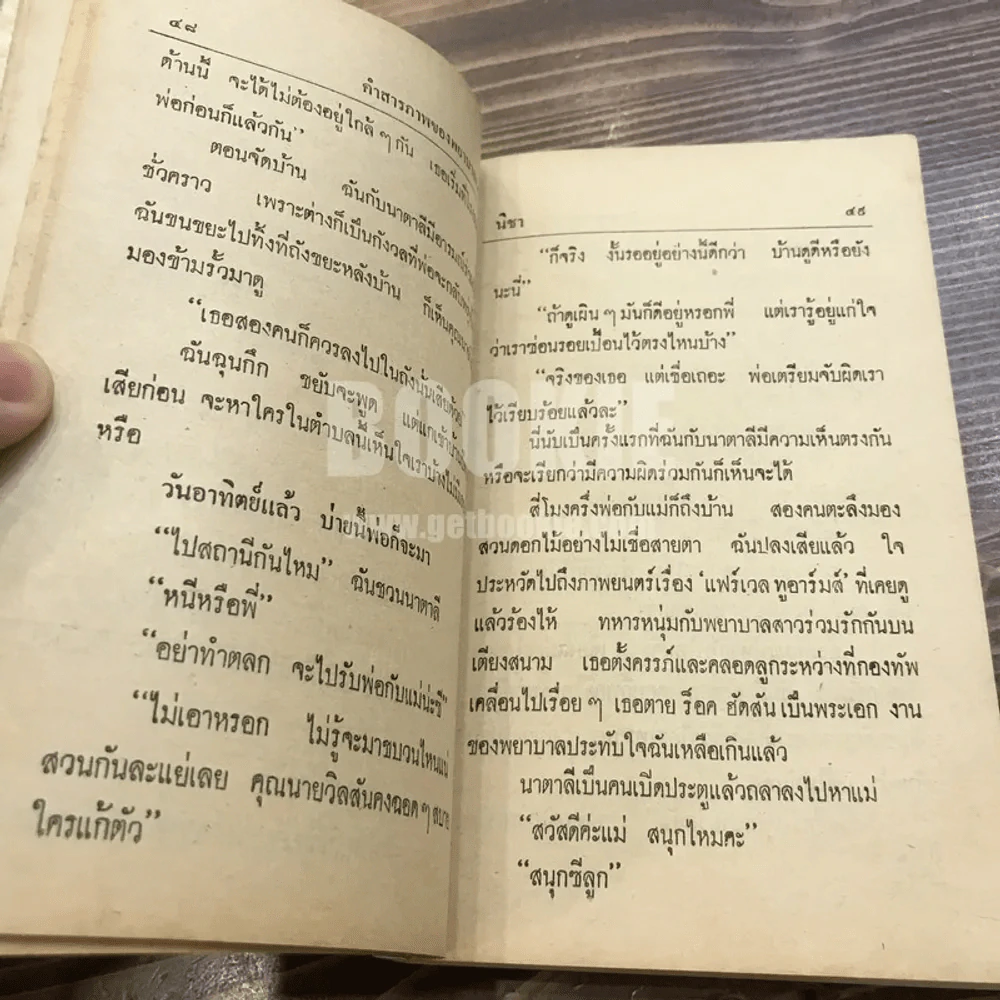 ๔๘
คำสารภาพของพยาบาล
ด้านนี้ จะได้ไม่ต้องอยู่ใกล้ ๆ กัน เธอเริ่ม
พ่อก่อนก็แล้วกัน”
ตอนจัดบ้าน ฉันกับนาตาลีมีอารมณ์
ชั่วคราว เพราะต่างก็เป็นกังวลที่พ่อจะกลับ
ฉันขนขยะไปทิ้งที่ถังขยะหลังบ้าน ก็เห็นคุณนาย
มองข้ามรั้วมาดู
“เธอสองคนก็ควรลงไปในถังนั่นเสียด้วย”
ฉันฉุนกึก ขยับจะพูด แต่แกเข้าบ้าน
เสียก่อน จะหาใครในตำบลนี้เห็นใจเราบ้างไม่มี
หรือ
วันอาทิตย์แล้ว บ่ายนี้พ่อก็จะมา
“ไปสถานีกันไหม” ฉันชวนนาตาลี
“หนีหรือพี่”
“อย่าทำตลก จะไปรับพ่อกับแม่น่ะซี”
“ไม่เอาหรอก ไม่รู้จะมาขบวนไหนแน่
สวนกันละแย่เลย คุณนายวิลสันคงฉอด ๆ สบาย
ใครแก้ตัว”
นิชา
๔๙
“ก็จริง งั้นรออยู่อย่างนี้ดีกว่า บ้านดูดีหรือยัง
นะนี่”
“ถ้าดูเผิน ๆ มันก็ดีอยู่หรอกพี่ แต่เรารู้อยู่แก่ใจ
ว่าเราซ่อนรอยเปื้อนไว้ตรงไหนบ้าง”
“จริงของเธอ แต่เชื่อเถอะ พ่อเตรียมจับผิดเรา
ไว้เรียบร้อยแล้วละ”
นี่นับเป็นครั้งแรกที่ฉันกับนาตาลีมีความเห็นตรงกัน
หรือจะเรียกว่ามีความผิดร่วมกันก็เห็นจะได้
สี่โมงครึ่งพ่อกับแม่ก็ถึงบ้าน สองคนตะลึงมอง
สวนดอกไม้อย่างไม่เชื่อสายตา ฉันปลงเสียแล้ว ใจ
ประหวัดไปถึงภาพยนตร์เรื่อง ‘แฟร์เวล ทูอาร์มส์’ ที่เคยดู
แล้วร้องไห้ ทหารหนุ่มกับพยาบาลสาวร่วมรักกันบน
เตียงสนาม เธอตั้งครรภ์และคลอดลูกระหว่างที่กองทัพ
เคลื่อนไปเรื่อย ๆ เธอตาย ร็อค ฮัดสัน เป็นพระเอก งาน
ของพยาบาลประทับใจฉันเหลือเกินแล้ว
นาตาลีเป็นคนเปิดประตูแล้วถลาลงไปหาแม่
“สวัสดีค่ะแม่ สนุกไหมคะ”
“สนุกซีลูก”
BOOKIE
www.getbookie.com